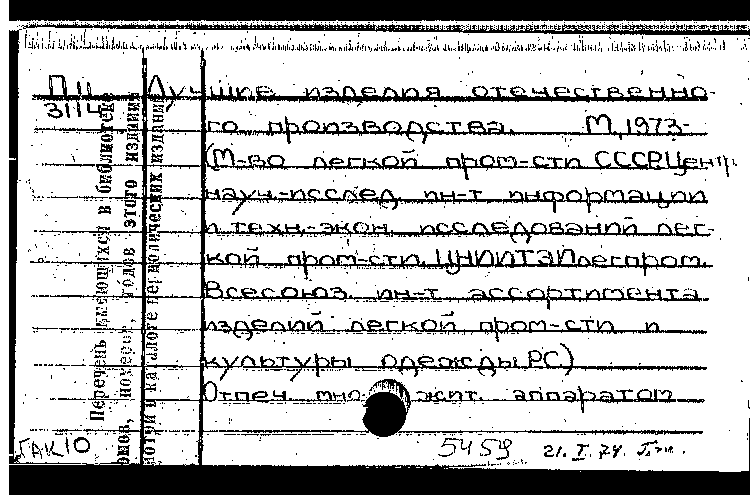 П 11
3114
Лучшие изделия отечественно-
го производства. М, 1973-
(М-во легкой пром-сти СССР, Центр.
науч.-исслед. ин-т информации
и техн.-экон. исследований лег-
кой пром-сти. ЦНИИТЭИлегпром.
Всесоюз. ин-т ассортимента
изделий легкой пром-сти и
культуры одежды. РС)
Отпеч. мно жит. аппаратом
Перечень имеющихся в библиотеке
томов, номеров, годов этого издания
смотри в каталоге периодических изданий
ГАК 10
5459 21.I.74